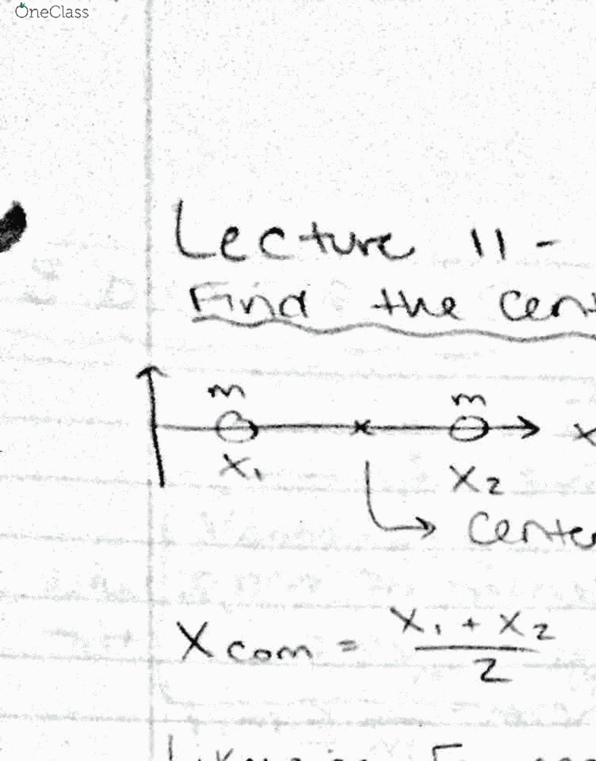 OneClass
Lecture 11 -
Find the cent
m m
x
X₁ X₂
Cente
Xcom = X₁ + X₂ / 2